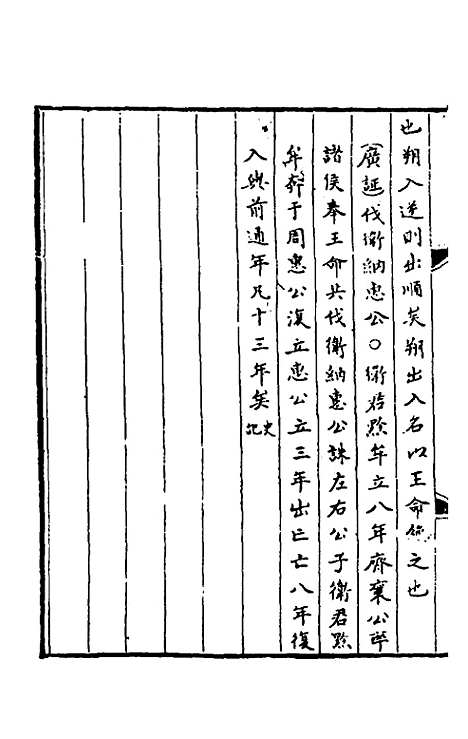 也朔入逆則出順矣朔出入名以王命絶之也
廣誕伐衛納惠公○衛君黔牟立八年齊襄公率
諸侯奉王命共伐衛納惠公誅左右公子衛君黔
牟奔于周惠公復立惠公立三年出亡亡八年復
入與前通年凡十三年矣史記